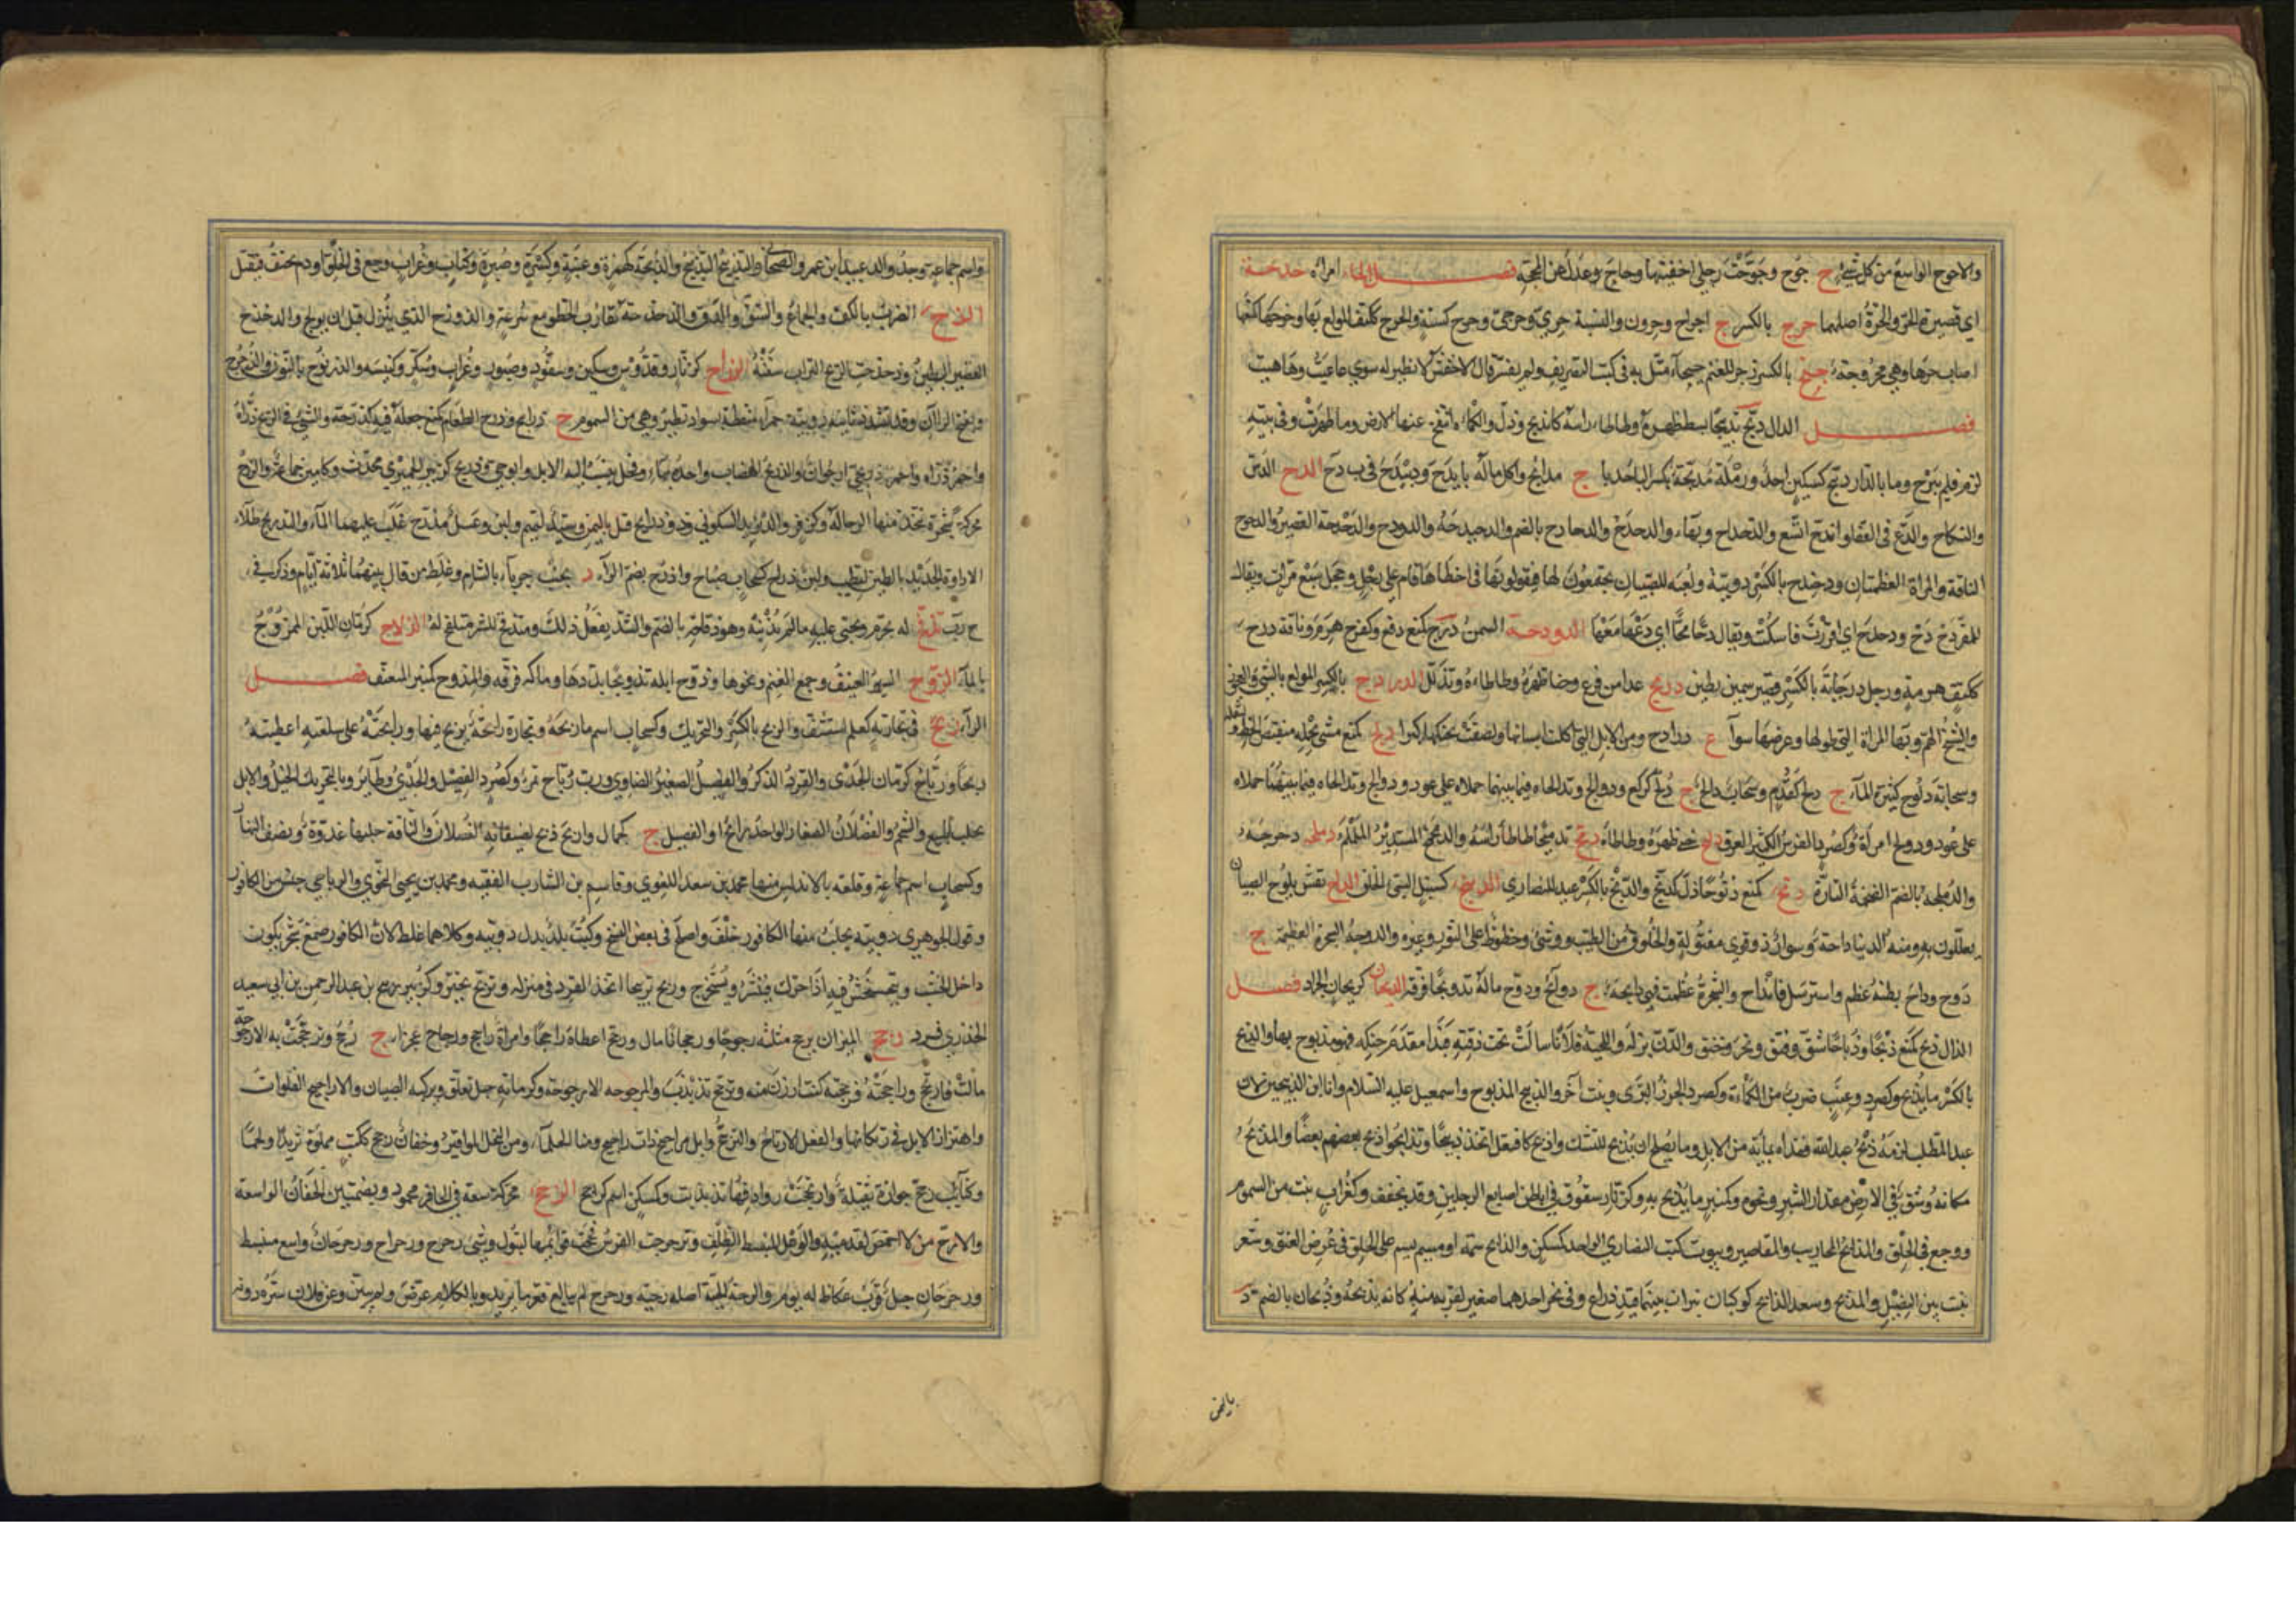 والاجوح الواسع من كل شئ ج جوح وجوحت رجلي احفيتها وجاح عدل عن المحجة فصل الحاء امرأة حدحة
اي قصيرة الحر والحرة اصلهما حرح بالكسر ج احراح وحرون والنسبة حري وحرحي وحرح كسته والحرح ككتف المولع بها وحرحها كمنعها
اصاب حرها وهي محروحة حيح بالكسر زجر للغنم حيحاء مثل به في كتب التصريف ولم يفسر قال الاخفش لا نظير له سوى عاعيت وهاهيت
فصل الدال دبح تدبيحا بسط ظهره وطاطا راسه كاندبح وذل والكماة انتفخ عنها الارض وما ظهرت وفي بيته
لزمه فلم يبرح وما بالدار دبيح كسكين احد ورملة مدبحة بكسر الباء حدباء ج مدابح واكل ماله بابدح ودبيدح في ب د ح الدح الدس
والنكاح والدع في القفا واندح اتسع والدحداح وبهاء والدحدح والدحادح بالضم والدحيدحة والدودح والدحدحة القصير والدحوح
الناقة والمرأة العظيمتان ودحندح بالكسر دويبة ولعبة للصبيان يجتمعون لها فيقولونها فمن اخطاها قام على رجل وحجل سبع مرات ويقال
للمقر دح دح ودحدح اي اقررت فاسكت ويقال دحا محا اي دعها معها الدودحة السمن درح كمنع دفع وكفرح هرم وناقة درح
ككتف هرمة ورجل درحاية بالكسر قصير سمين بطين دربح عدا من فزع وحنا ظهره وطاطاه وتذلل الدرادح بالكسر المولع بالشئ والعجوز
والشيخ الهم وبهاء المرأة التي طولها وعرضها سواء ج درادح ومن الابل التي اكلت اسنانها ولصقت بحنكها كبرا دلح كمنع مشى بحمله منقبض الخطو لثقله
وسحابة دلوح كثيرة الماء ج دلح كقدم وسحاب دالح ج دلح كركع ودوالح وتدالحاه فيما بينهما حملاه على عود
على عود ودولح امرأة وكصرد الفرس الكثير العرق دلبح حنى ظهره وطاطاه دمح تدميحا طاطا راسه والدمحمح المستدير الململم دملحه دحرجه
والدملحة بالضم الضخمة التارة دنح كمنع دنوحا ذل كدنح والدنح بالكسر عيد للنصارى الدنبح كسنبل السيئ الخلق الداح نقش يلوح للصبيان
يعللون به ومنه الدنيا داحة وسوار ذو قوى مفتولة والخلوق من الطيب ووشي وخطوط على الثور وغيره والدوحة الشجرة العظيمة ج
دوح وداح بطنه عظم واسترسل كانداح والشجرة عظمت فهي دائحة ج دوائح ودوح ماله تدويحا فرقه الديحان كريحان الجراد فصل
الذال ذبح كمنع ذبحا وذباحا شق وفتق ونحر وخنق والدن بزله واللحية فلانا سالت تحت ذقنه فبدا مقدم حنكه فهو مذبوح بها والذبح
بالكسر ما يذبح وكصرد وعنب ضرب من الكماة وكصرد الجزر البري ونبت آخر والذبيح المذبوح واسمعيل عليه السلام وانا ابن الذبيحين لان
عبد المطلب لزمه ذبح عبد الله ففداه بمائة من الابل وما يصلح ان يذبح للنسك واذبح كافتعل اتخذ ذبيحا وتذابحوا ذبح بعضهم بعضا والمذبح
مكانه وشق في الارض مقدار الشبر ونحوه وكمنبر ما يذبح به وكزنار شقوق في باطن اصابع الرجلين وقد يخفف وكغراب نبت من السموم
ووجع في الحلق والمذابح المحاريب والمقاصير وبيوت كتب النصارى الواحد كمسكن والذابح سمة او ميسم يسم على الحلق في عرض العنق وشعر
نبت بين النصيل والمذبح وسعد الذابح كوكبان نيران بينهما قيد ذراع وفي نحر احدهما صغير لقربه منه كانه يذبحه وذبحان بالضم د
باليمن
واسم جماعة وجد والد عبيد ابن عمرو الصحابي والتذبيح التدبيح والذبحة كهمزة وعنبة وكسرة وصبرة وكتاب وغراب وجع في الحلق او دم يخنق فيقتل
الذح الضرب بالكف والجماع والشق والدق والذحذحة تقارب الخطو مع سرعة والذوذح الذي ينزل قبل ان يولج والذحذح
القصير البطين وذحذحت الريح التراب سفته الذراح كزنار وقدوس وسكين وسفود وصبور وغراب وسكر وكنيسة والذرنوح بالنون والذرحرح
وتفتح الراآن وقد تشدد ثانيه دويبة حمراء منقطة بسواد تطير وهي من السموم ج ذراريح وذرح الطعام كمنع جعله فيه كذرحه والشئ في الريح ذراه
واحمر ذريحي ارجوان والذريح الهضاب واحده بهاء وفحل ينسب اليه الابل وابو حي وذريح كزبير الحميري محدث وكامير جماعة والذرح
محركة شجرة تتخذ منها الرحالة وكزفر والد يزيد السكوني وذو ذراريح قيل باليمن وسيد لتميم ولبن وعسل مذرح غلب عليهما الماء والتذريح طلاء
الاداوة الجديدة بالطين لتطيب ولبن ذراح كسحاب ضياح واذرح بضم الراء د بجنب جرباء بالشام وغلط من قال بينهما ثلاثة ايام وذكر في
ج ر ب تذقح له تجرم وتجنى عليه ما لم يذنبه وهو ذقاحة بالضم والشد يفعل ذلك ومتذقح للشر متلقح له الذلاح كرمان اللبن الممزوج
بالماء الذوح السير العنيف وجمع الغنم ونحوها وذوح ابله تذويحا بددها وماله فرقه والمذوح كمنبر المعنف فصل
الراء ربح في تجارته كعلم استشف والربح بالكسر والتحريك وكسحاب اسم ما ربحه وتجارة رابحة يربح فيها ورابحته على سلعته اعطيته
ربحا ورباح كرمان الجدي والقرد الذكر والفصيل الصغير الضاوي ورب رباح تمر وكصرد الفصيل والجدي وطائر وبالتحريك الخيل والابل
تجلب للبيع والشحم والفصلان الصغار الواحد رابح او الفصيل ج كجمال واربح ذبح لضيفانه الفصلان والناقة حلبها غدوة ونصف النهار
وكسحاب اسم جماعة وقلعة بالاندلس منها محمد بن سعد اللغوي وقاسم بن الشارب الفقيه ومحمد بن يحيى النحوي والرباحي جنس من الكافور
وقول الجوهري دويبة يجلب منها الكافور خلف واصلح في بعض النسخ وكتب بلد بدل دويبة وكلاهما غلط لان الكافور صمغ شجر يكون
داخل الخشب ويتخشخش فيه اذا حرك فينشر ويستخرج وربح تربيحا اتخذ القرد في منزله وتربح تحير وكزبير ربيح بن عبد الرحمن بن ابي سعيد
الخدري فرد رجح الميزان يرجح مثلثة رجوحا ورجحانا مال ورجح اعطاه راجحا وامرأة راجح ورجاح عجزاء ج رجح وترجحت به الارجوحة
مالت فارتجح وراجحته فرجحته كنت ارزن منه وترجح تذبذب والمرجوحة الارجوحة وكرمانة حبل تعلق ويركبه الصبيان والاراجيح الفلوات
واهتزاز الابل في رتكانها والفعل الارتجاح والترجح وابل مراجيح ذات اراجيح ومنا الحلماء ومن النخل المواقير وجفان رجح ككتب مملوءة ثريدا ولحما
وكتائب رجح جرارة ثقيلة وارتجحت روادفها تذبذبت وكمسكن اسم كراجح الرحح محركة سعة في الحافر محمود وبضمتين الجفان الواسعة
والارح من لا اخمص لقدميه والوعل المنبسط الظلف وترحرحت الفرس فحجت قوائمها لتبول وشئ رحرح ورحراح ورحرحان واسع منبسط
ورحرحان جبل قرب عكاظ له يوم والرحة الحية اصله رحية ورحرح لم يبالغ قعر ما يريد وبالكلام عرض ولم يبين وعن فلان ستر دونه